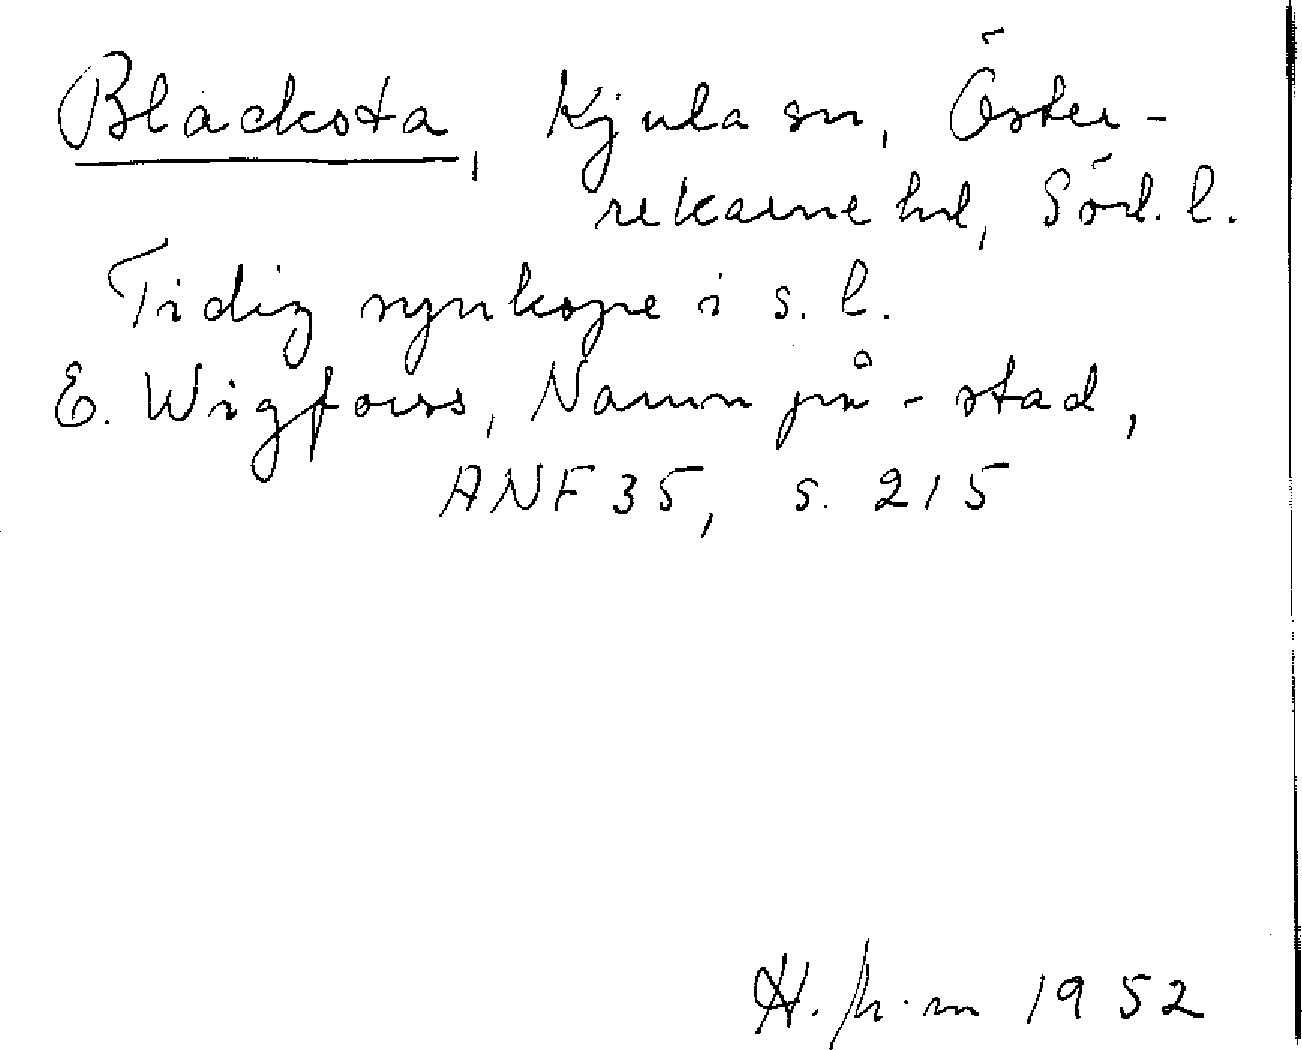 Blacksta, Kjula sn, Öster-
rekarne hd, Söd. l.
Tidig synkope i s. l.
E. Wigforss, Namn på -stad,
ANF 35, s. 215
1952